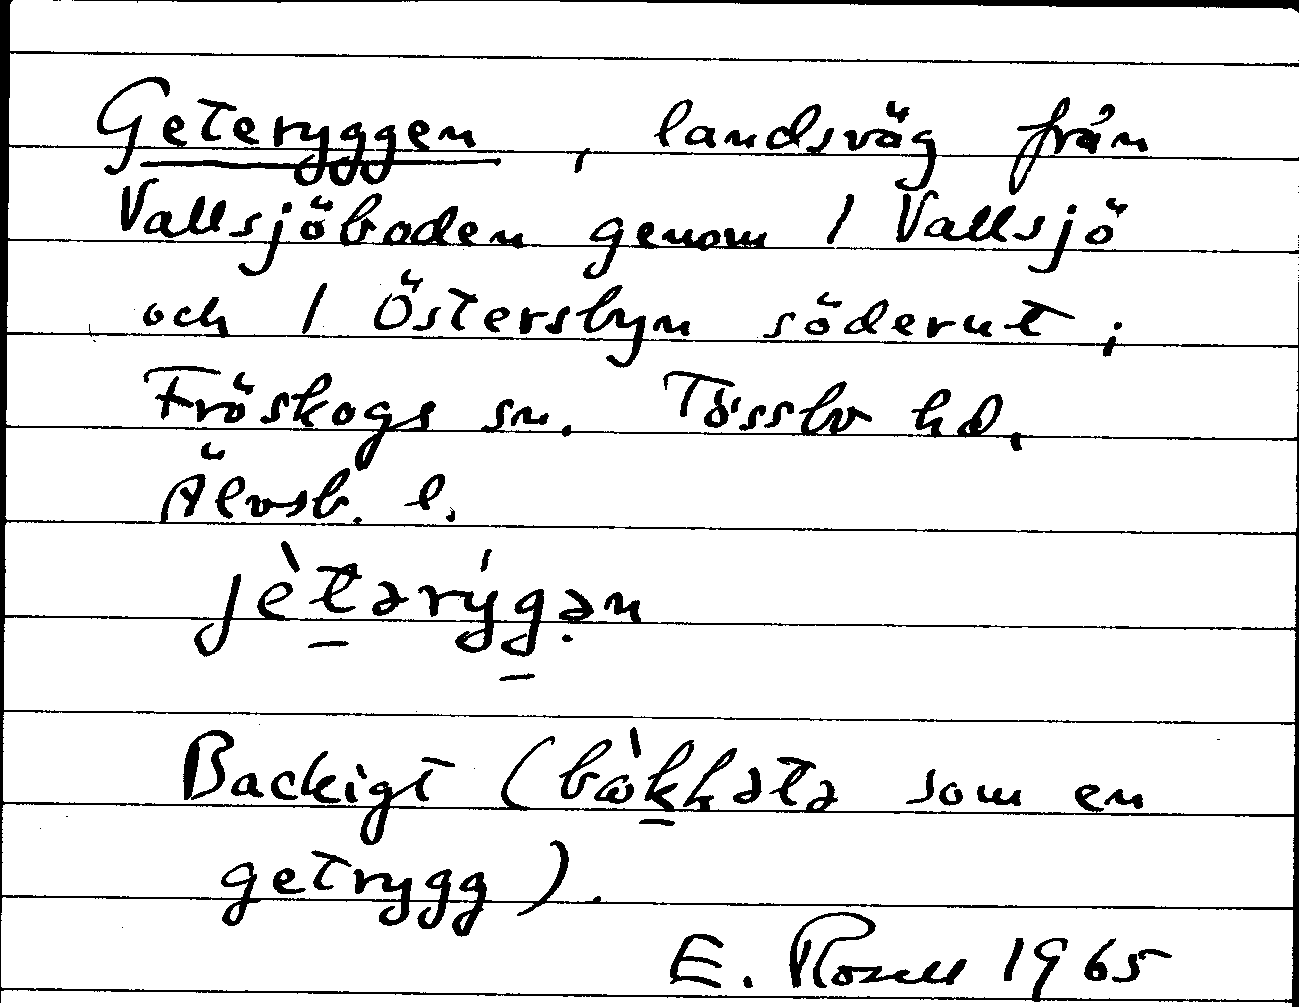 Geteryggen, landsväg från
Vallsjöboden genom 1 Vallsjö
och 1 Östersbyn söderut;
Fröskogs sn. Tössbo hd.
Älvsb. l.
jètərýgən
Backigt (bàkhətə som en
getrygg).
E. Rosell 1965